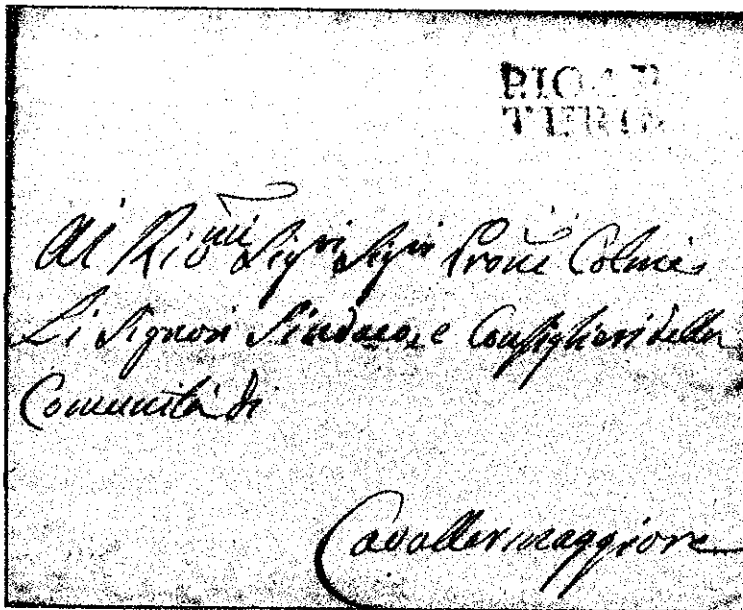 Al
Sig.ri Sig.ri Proni Colmi
Li Signori Sindaco, e Consiglieri della
Comunità di
Cavallermaggiore